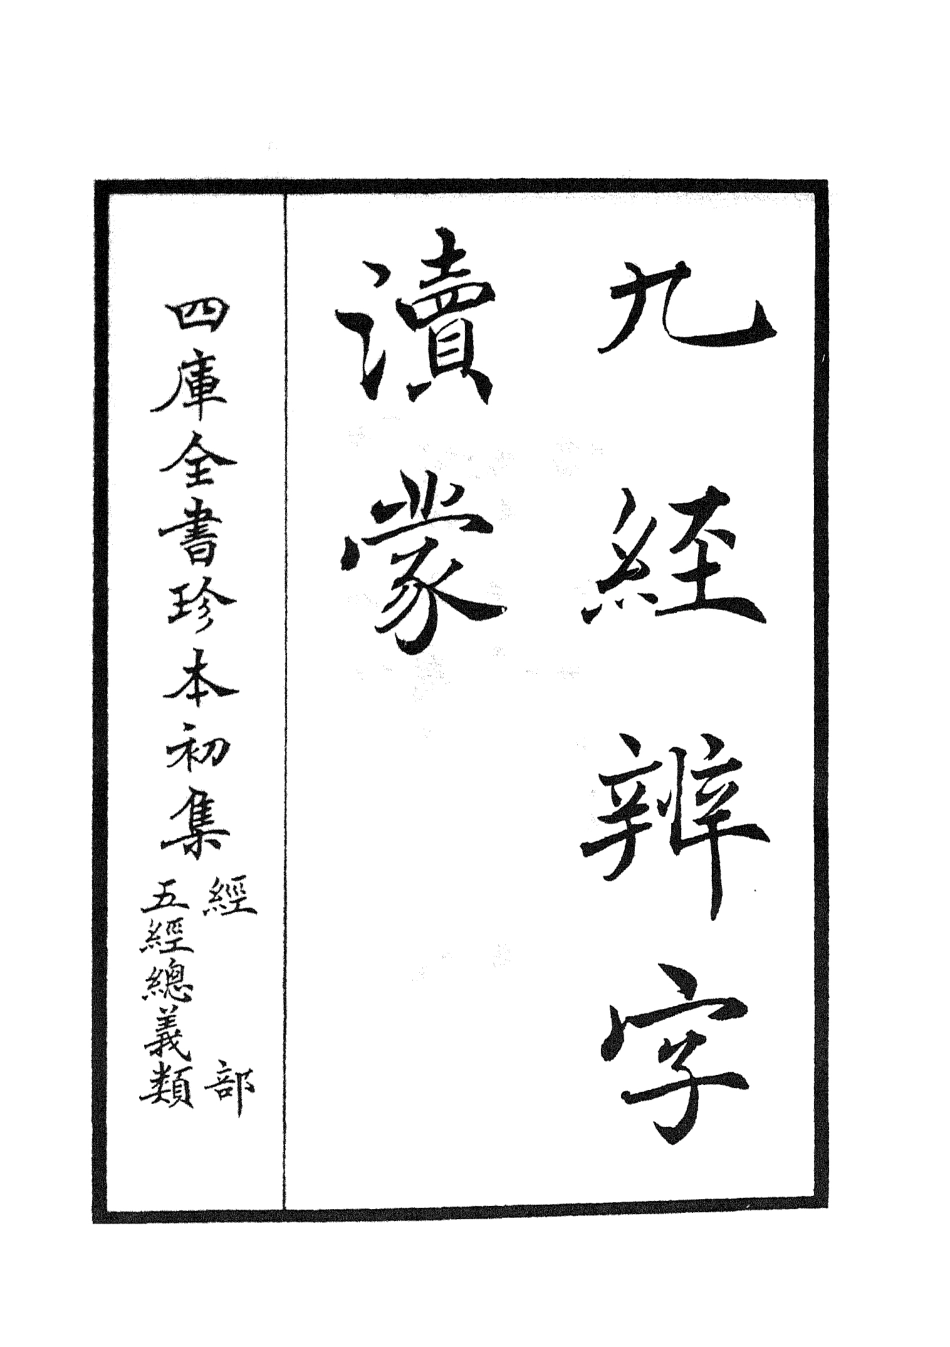 九經辨字
瀆蒙
四庫全書珍本初集
經部
五經總義類